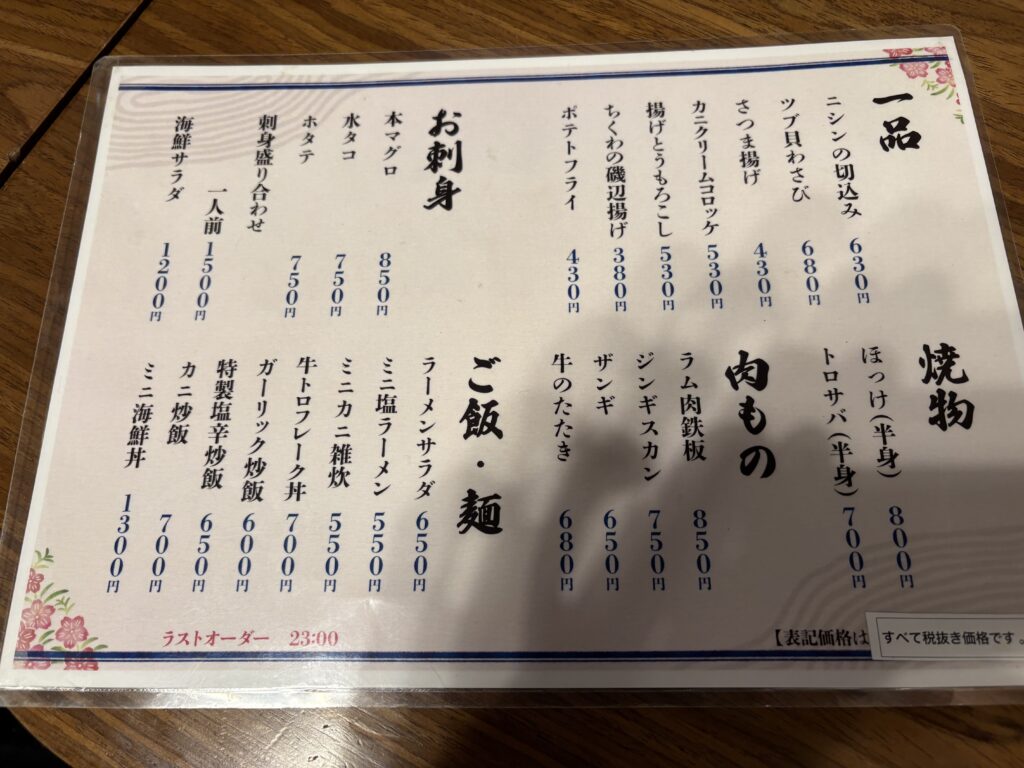 一品
ニシンの切込み 630円
ツブ貝わさび 680円
さつま揚げ 430円
カニクリームコロッケ 530円
揚げとうもろこし 530円
ちくわの磯辺揚げ 380円
ポテトフライ 430円
お刺身
本マグロ 850円
水タコ 750円
ホタテ 750円
刺身盛り合わせ
一人前 1500円
海鮮サラダ 1200円
焼物
ほっけ(半身) 800円
トロサバ(半身) 700円
肉もの
ラム肉鉄板 850円
ジンギスカン 750円
ザンギ 650円
牛のたたき 680円
ご飯・麺
ラーメンサラダ 650円
ミニ塩ラーメン 550円
ミニカニ雑炊 550円
牛トロフレーク丼 700円
ガーリック炒飯 600円
特製塩辛炒飯 650円
カニ炒飯 700円
ミニ海鮮丼 1300円
ラストオーダー 23:00
【表記価格は
すべて税抜き価格です。